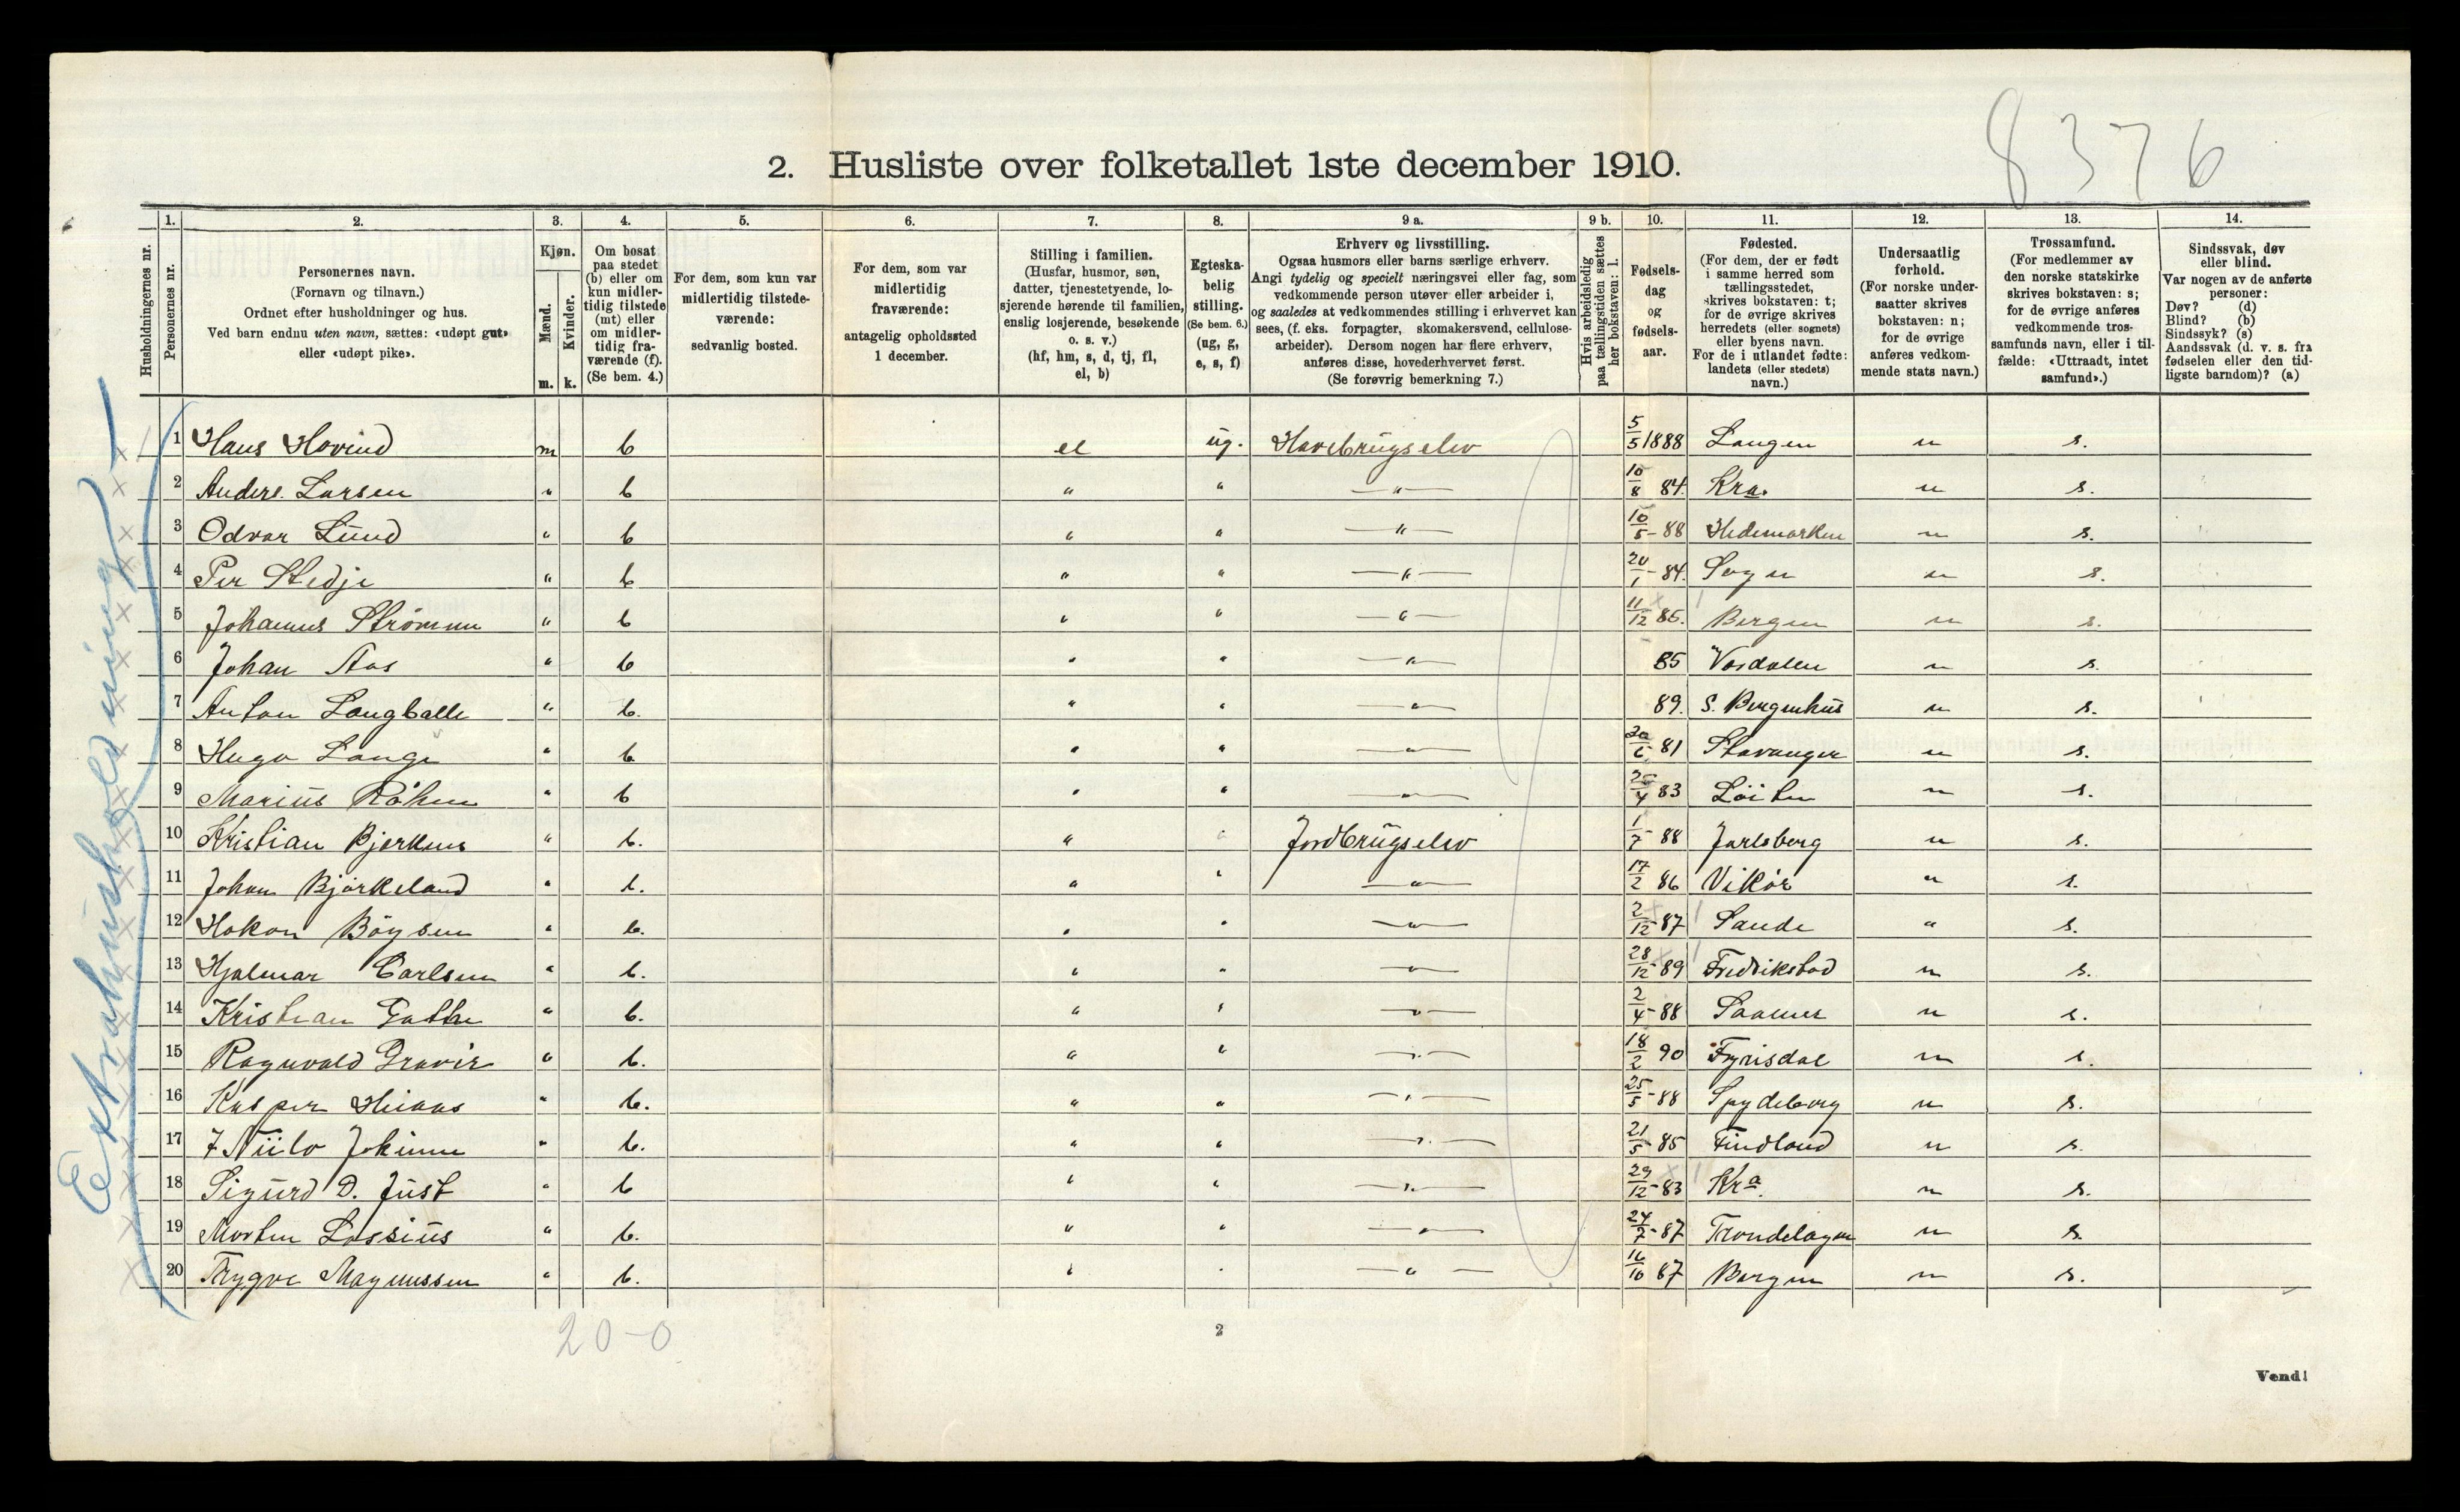 8376
2. Husliste over folketallet 1ste december 1910.
1. 2. 3. 4. 5. 6. 7. 8. 9 a. 9 b. 10. 11. 12. 13. 14.
Husholdningernes nr.
Personernes nr.
Personernes navn.
(Fornavn og tilnavn.)
Ordnet efter husholdninger og hus.
Ved barn endnu uten navn, sættes: «udøpt gut»
eller «udøpt pike».
Kjøn.
Mænd.
Kvinder.
m. k.
Om bosat
paa stedet
(b) eller om
kun midler-
tidig tilstede
(mt) eller
om midler-
tidig fra-
værende (f).
(Se bem. 4.)
For dem, som kun var
midlertidig tilstede-
værende:
sedvanlig bosted.
For dem, som var
midlertidig
fraværende:
antagelig opholdssted
1 december.
Stilling i familien.
(Husfar, husmor, søn,
datter, tjenestetyende, lo-
sjerende hørende til familien,
enslig losjerende, besøkende
o. s. v.)
(hf, hm, s, d, tj, fl,
el, b)
Egteska-
belig
stilling.
(Se bem. 6.)
(ug, g,
e, s, f)
Erhverv og livsstilling.
Ogsaa husmors eller barns særlige erhverv.
Angi tydelig og specielt næringsvei eller fag, som
vedkommende person utøver eller arbeider i,
og saaledes at vedkommendes stilling i erhvervet kan
sees, (f. eks. forpagter, skomakersvend, cellulose-
arbeider). Dersom nogen har flere erhverv,
anføres disse, hovederhvervet først.
(Se forøvrig bemerkning 7.)
Hvis arbeidsledig
paa tællingstiden sættes
her bokstaven: l.
Fødsels-
dag
og
fødsels-
aar.
Fødested.
(For dem, der er født
i samme herred som
tællingsstedet,
skrives bokstaven: t;
for de øvrige skrives
herredets (eller sognets)
eller byens navn.
For de i utlandet fødte:
landets (eller stedets)
navn.)
Undersaatlig
forhold.
(For norske under-
saatter skrives
bokstaven: n;
for de øvrige
anføres vedkom-
mende stats navn.)
Trossamfund.
(For medlemmer av
den norske statskirke
skrives bokstaven: s;
for de øvrige anføres
vedkommende tros-
samfunds navn, eller i til-
fælde: «Uttraadt, intet
samfund».)
Sindssvak, døv
eller blind.
Var nogen av de anførte
personer:
Døv? (d)
Blind? (b)
Sindssyk? (s)
Aandssvak (d. v. s. fra
fødselen eller den tid-
ligste barndom)? (a)
Extrahusholdning
1 Hans Hovind m b el ug. Havebrugselev 5/5 1888 Langen n s.
2 Anders Larsen " b " " —"— 10/8 84. Kra. n s.
3 Odvar Lund " b " " —"— 10/5-88 Hedemarken n s.
4 Per Stedje " b " " —"— 20/1-84. Sogn n s.
5 Johannes Strømmen " b " " —"— 11/12 85. Bergen n s.
6 Johan Aas " b " " —"— 85 Værdalen n s.
7 Anton Langballe " b. " " —"— 89. S. Bergenhus n s.
8 Hugo Lange " b " " —"— 20/6 81 Stavanger n s.
9 Marius Röhne " b " " —"— 20/4 83 Löiten n s.
10 Kristian Bjerknes " b. " " Jordbrugselev 1/7-88 Jarlsberg n s.
11 Johan Bjørkeland " b. " " —"— 17/2 86 Vikør " s.
12 Hakon Böysen " b. " " —"— 2/12-87 Sande " s.
13 Hjalmar Carlsen " b. " " —"— 28/12-89 Fredrikstad n s.
14 Kristian " b. " " —"— 2/4-88 n s.
15 Ragnvald Gravir " b. " " —"— 18/2 90 Fyrisdal n s.
16 Kasper " b. " " —"— 25/5-88 Spydeberg n s.
17 Niilo " b. " " —"— 21/5-85 Findland n s.
18 Sigurd D. Just " b " " —"— 29/12-83 Kra. n s.
19 Morten Lossius " b. " " —"— 24/7-87 Trondelagen n s.
20 Trygve Magnussen " b. " " —"— 16/10 87 Bergen n s.
20-0
2
Vend!